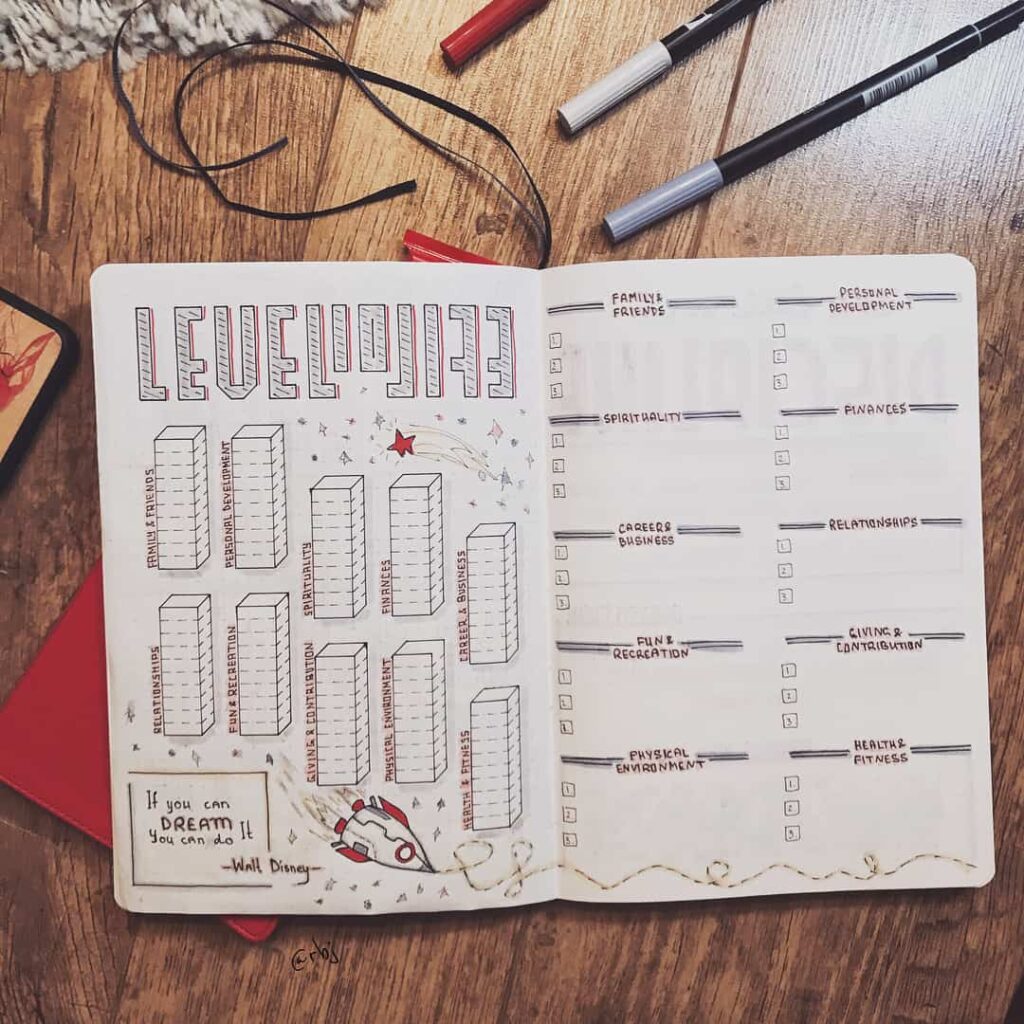 LEVEL 10 LIFE
FAMILY & FRIENDS
PERSONAL DEVELOPMENT
SPIRITUALITY
FINANCES
CAREER & BUSINESS
RELATIONSHIPS
FUN & RECREATION
GIVING & CONTRIBUTION
PHYSICAL ENVIRONMENT
HEALTH & FITNESS
If you can
DREAM It
You can do
-Walt Disney-
FAMILY &
FRIENDS
1.
2.
3.
PERSONAL
DEVELOPMENT
1.
2.
3.
SPIRITUALITY
1.
2.
3.
FINANCES
1.
2.
3.
CAREER &
BUSINESS
1.
2.
3.
RELATIONSHIPS
1.
2.
3.
FUN &
RECREATION
1.
2.
3.
GIVING &
CONTRIBUTION
1.
2.
3.
PHYSICAL
ENVIRONMENT
1.
2.
3.
HEALTH &
FITNESS
1.
2.
3.
@rbj